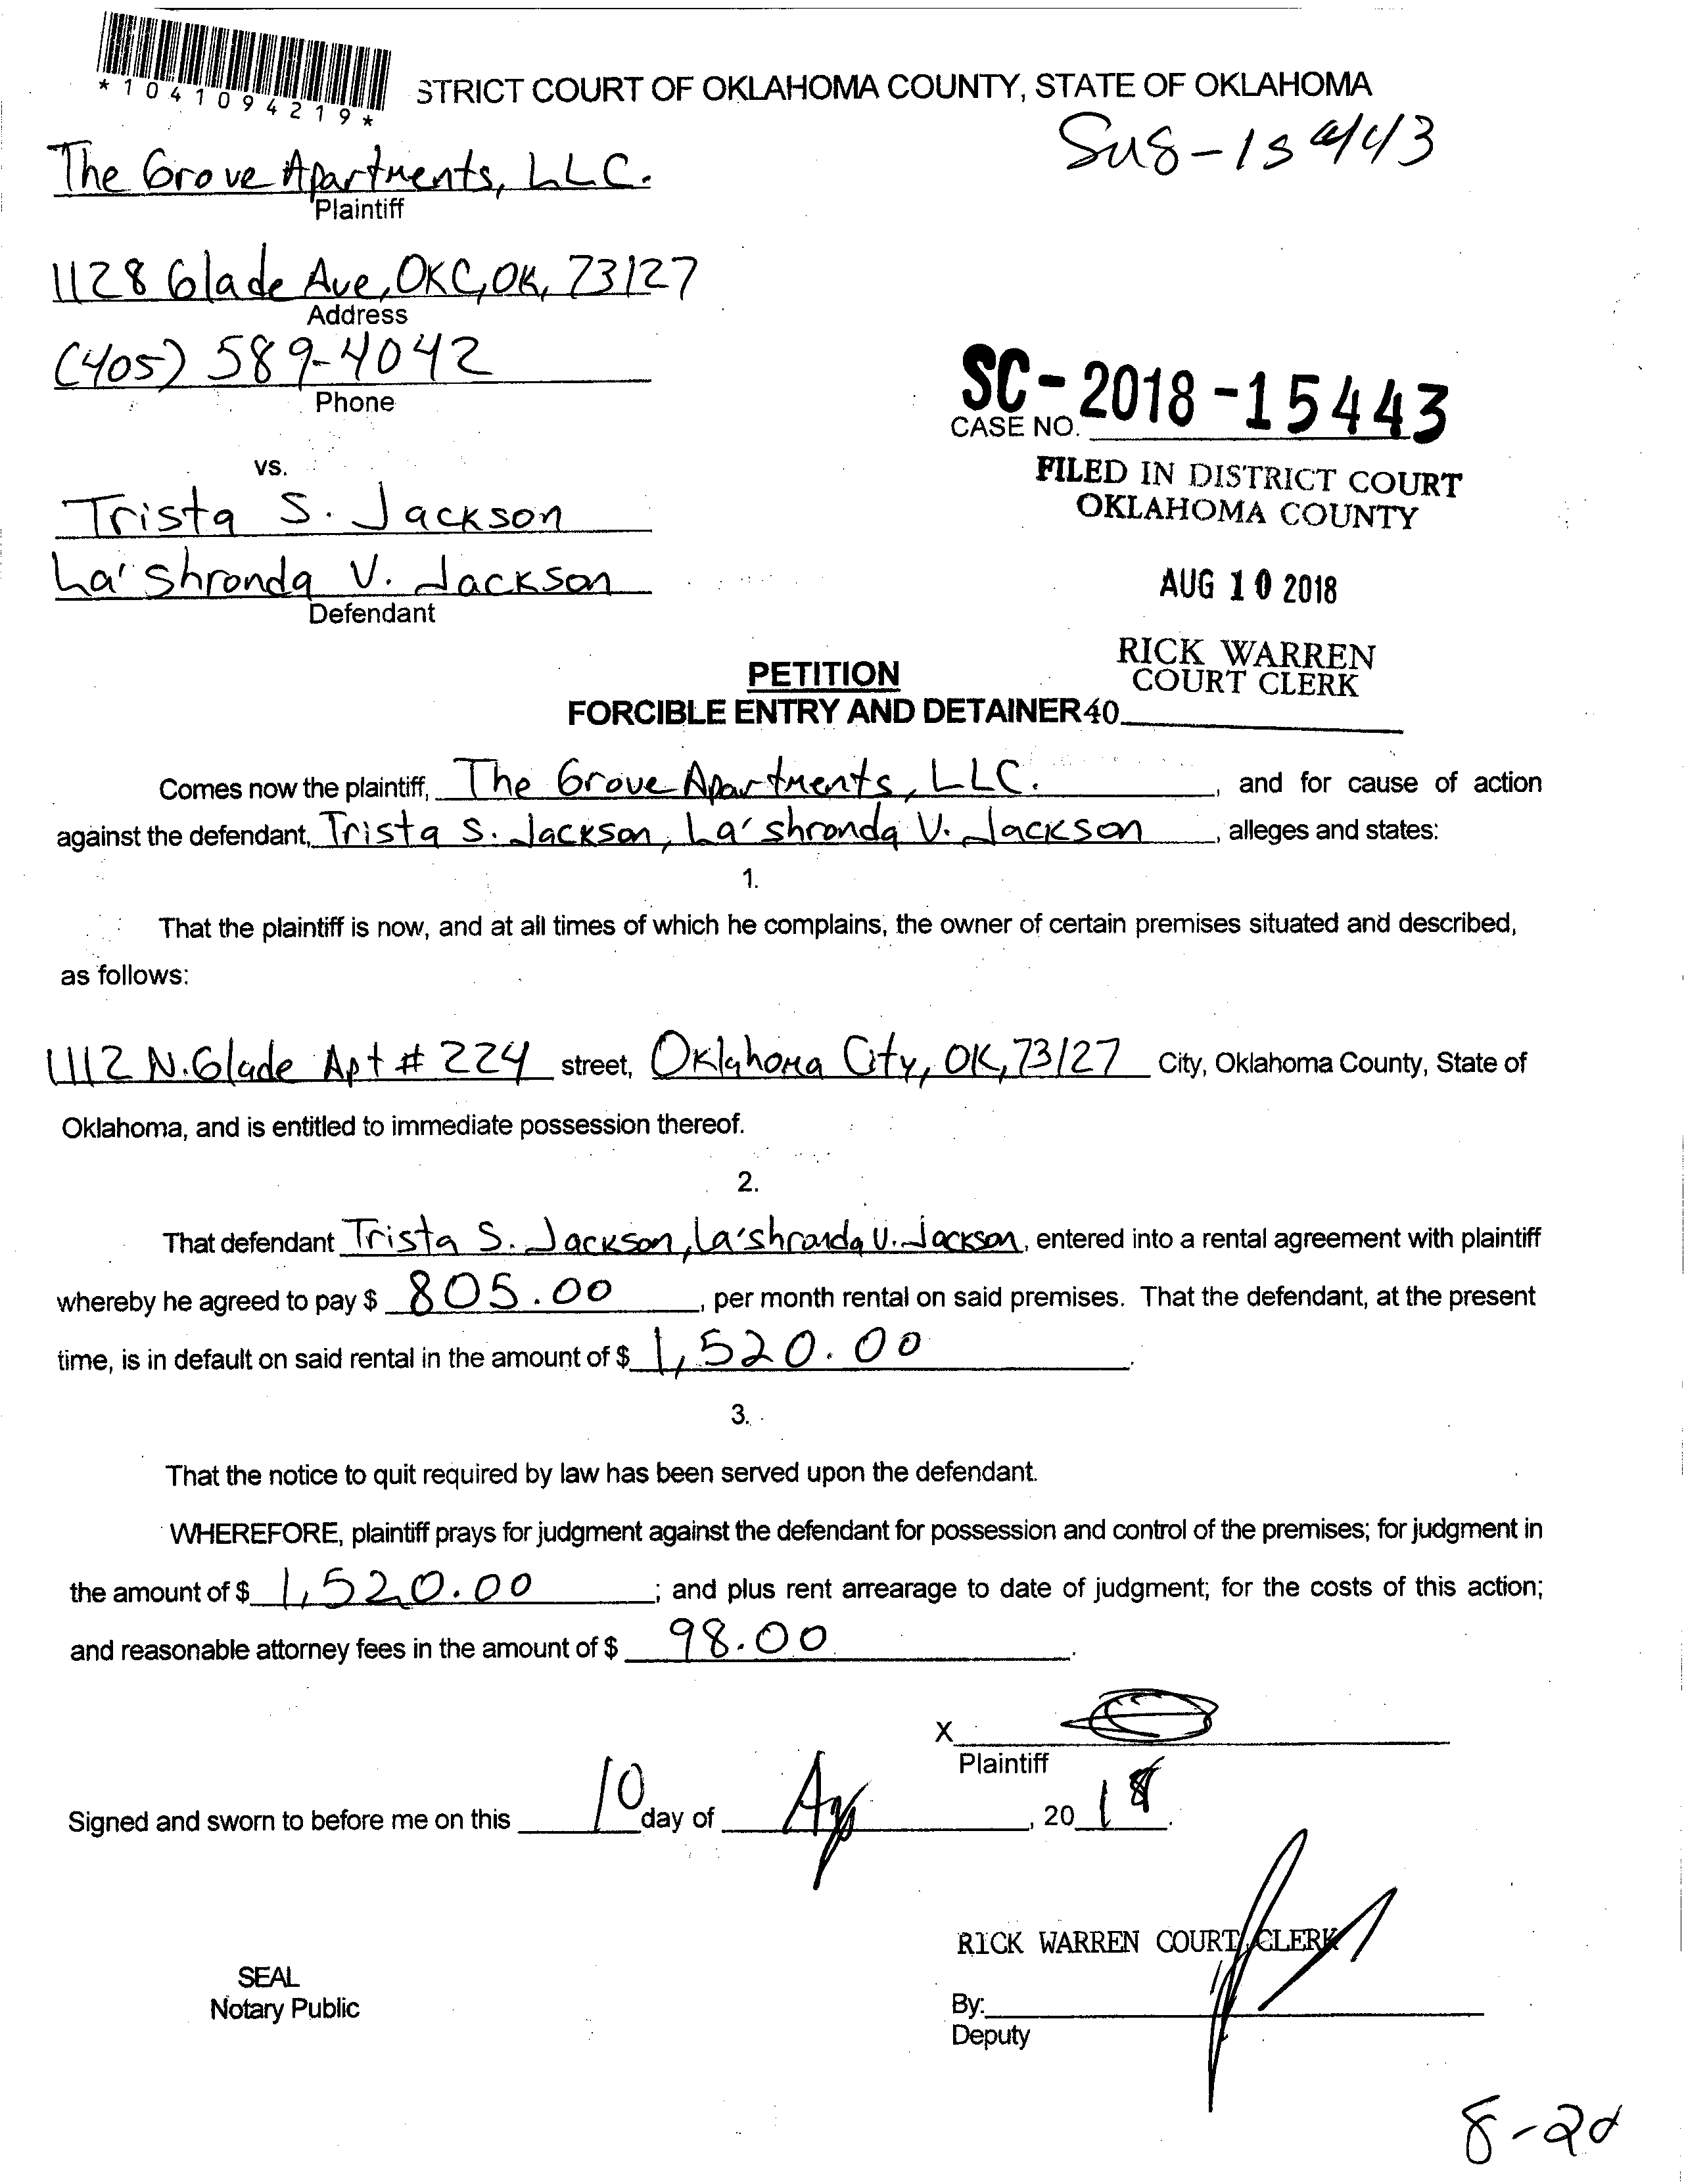 *1041094219*
STRICT COURT OF OKLAHOMA COUNTY, STATE OF OKLAHOMA
The Grove Apartments, LLC.
Plaintiff
1128 Glade Ave, OKC, OK, 73127
Address
(405) 589-4042
Phone
SC-2018-15443
CASE NO.
vs.
FILED IN DISTRICT COURT
OKLAHOMA COUNTY
Trista S. Jackson
La'shronda V. Jackson
Defendant
AUG 10 2018
RICK WARREN
COURT CLERK
PETITION
FORCIBLE ENTRY AND DETAINER 40
Comes now the plaintiff, The Grove Apartments, LLC. , and for cause of action
against the defendant, Trista S. Jackson, La'shronda V. Jackson , alleges and states:
1.
That the plaintiff is now, and at all times of which he complains, the owner of certain premises situated and described,
as follows:
1112 N. Glade Apt # 224 street, Oklahoma City, OK, 73127 City, Oklahoma County, State of
Oklahoma, and is entitled to immediate possession thereof.
2.
That defendant Trista S. Jackson, La'shronda V. Jackson, entered into a rental agreement with plaintiff
whereby he agreed to pay $ 805.00 , per month rental on said premises. That the defendant, at the present
time, is in default on said rental in the amount of $ 1,520.00 .
3.
That the notice to quit required by law has been served upon the defendant.
WHEREFORE, plaintiff prays for judgment against the defendant for possession and control of the premises; for judgment in
the amount of $ 1,520.00 ; and plus rent arrearage to date of judgment; for the costs of this action;
and reasonable attorney fees in the amount of $ 98.00 .
X
Plaintiff
Signed and sworn to before me on this 10 day of Ag , 20 18 .
RICK WARREN COURT CLERK
SEAL
Notary Public
By:
Deputy